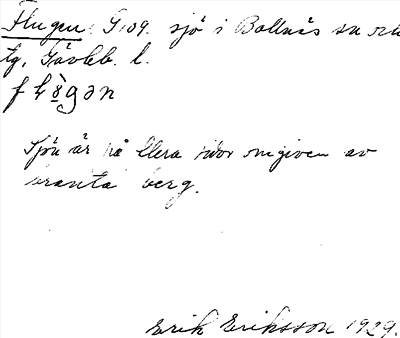 Flugen. G109. sjö i Bollnäs sn och
tg, Gävleb. l.
Sjön är på flera sidor omgiven av
branta berg.
Erik Eriksson 1929.